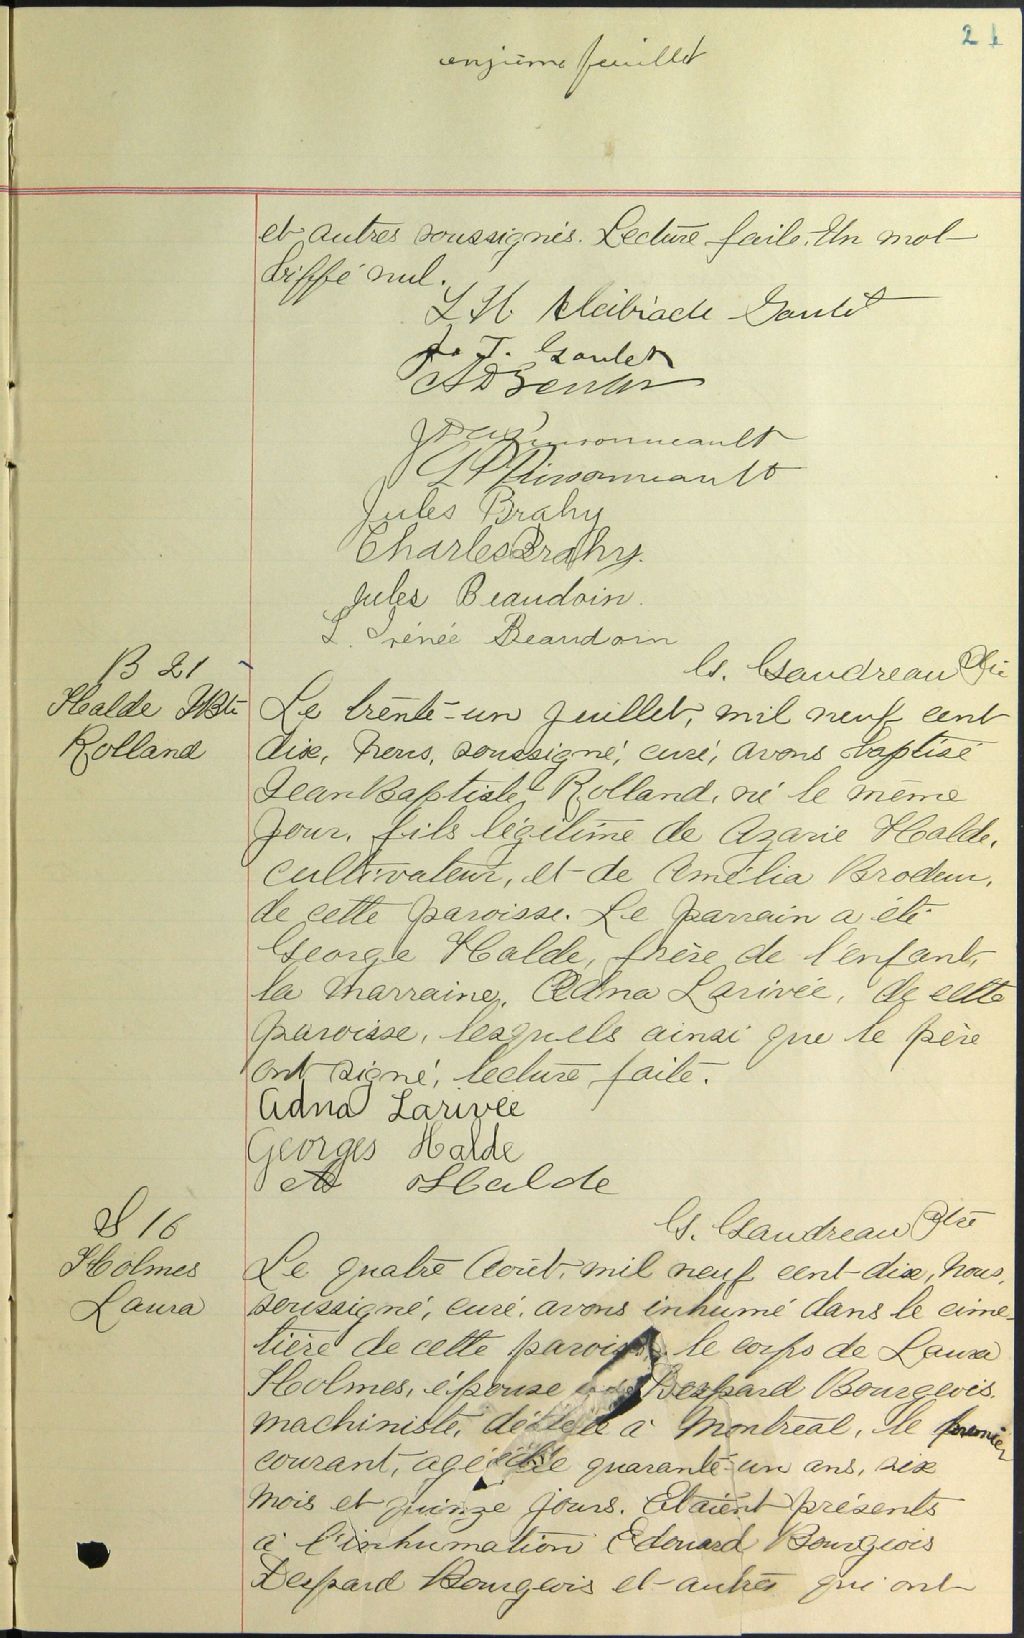 21
onzième feuillet
et autres soussignés. Lecture faite. Un mot
biffé nul.
L H Alcibiade Goulet
J. T. Goulet
Jules Brahy
Charles Brahy.
Jules Beaudoin.
L. Irénée Beaudoin
G. Gaudreau Ptre
B 21
Halde JBte
Rolland
Le trente-un Juillet, mil neuf cent
dix, Nous, soussigné, curé, avons baptisé
Jean Baptiste Rolland, né le même
jour, fils légitime de Azarie Halde,
cultivateur, et de Amélia Brodeur,
de cette paroisse. Le parrain a été
George Halde, frère de l'enfant,
la marraine, Adna Larivée, de cette
paroisse, lesquels ainsi que le père
ont signé, lecture faite.
Adna Larivée
Georges Halde
Az Halde
G. Gaudreau Ptre
S 16
Holmes
Laura
Le quatre Août, mil neuf cent-dix, Nous,
soussigné, curé, avons inhumé dans le cime-
tière de cette paroisse, le corps de Laura
Holmes, épouse de Despard Bourgeois
machiniste, décédée à Montréal, le premier
courant, agée de quarante-un ans, six
mois et quinze jours. Etaient présents
à l'inhumation Edouard Bourgeois
Despard Bourgeois et autres qui ont